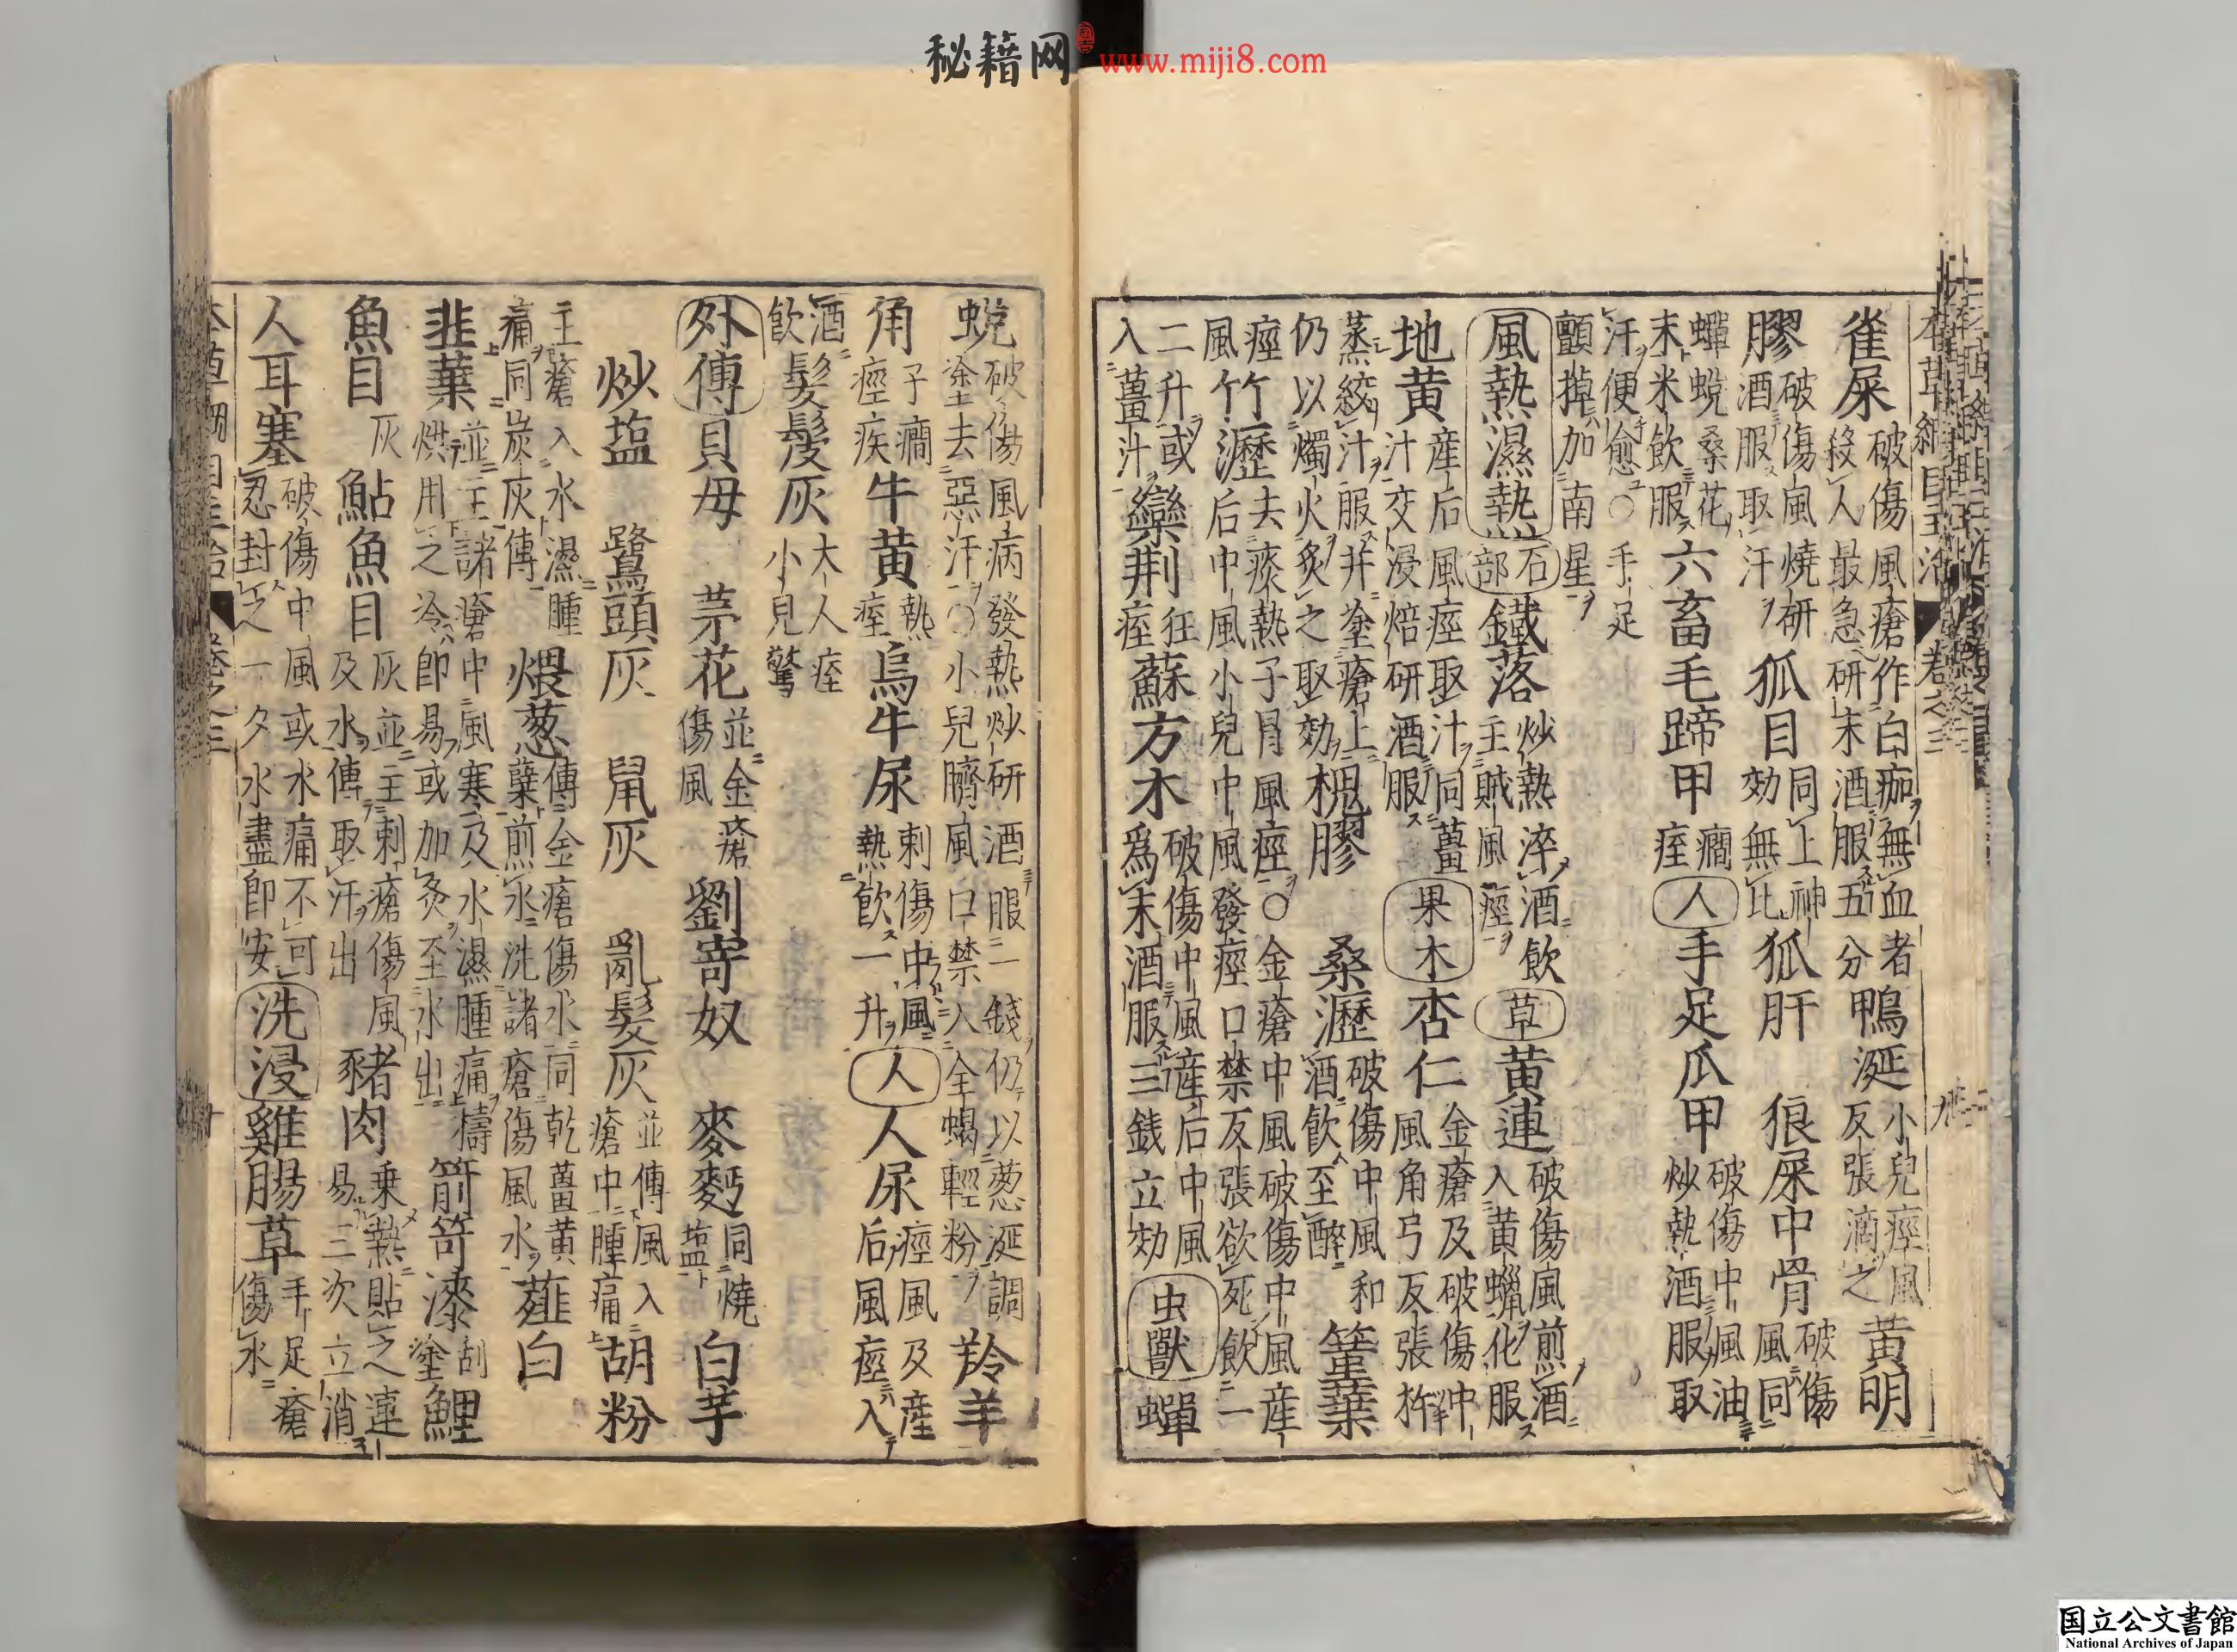 秘籍网 www.miji8.com
本草綱目主治 卷之三
雀屎 破傷風瘡作白痂無血者殺人最急研末酒服五分 鴨涎 小兒痙風反張滴之 黃明
膠 破傷風燒研酒服取汗 狐目 同上神効無比 狐肝 狼屎中骨 破傷風同
蟬蛻 桑花末米飲服 六畜毛蹄甲 癇痓 人 手足爪甲 破傷中風油炒熱酒服取
汗便愈○手足顫掉加南星
風熱濕熱 石部 鐵落 炒熱淬酒飲主賊風痙 草 黃連 破傷風煎酒入黃蠟化服
地黃 產后風痙取汁同薑汁交浸焙研酒服 果木 杏仁 金瘡及破傷中風角弓反張杵
蒸絞汁服并塗瘡上仍以燭火炙之取効 槐膠 桑瀝 破傷中風和酒飲至醉 篁葉
痙風 竹瀝 去痰熱子冐風痙○金瘡中風破傷中風產后中風小兒中風發痙口禁反張欲死飲一
二升或入薑汁 欒荆 狂痓 蘇方木 破傷中風產后中風爲末酒服三錢立効 虫獸 蟬
蛻 破傷風病發熱炒研酒服二錢仍以葱涎調塗去惡汗○小兒臍風口禁入全蝎輕粉 羚羊
角 子癇痙疾 牛黃 熱痓 烏牛尿 刺傷中風熱飲一升 人 人尿 痙風及產后風痙入
酒飲 髮髲灰 大人痓小兒驚
外傅 貝母 茅花 並金瘡傷風 劉寄奴 麥麪 同燒塩 白芋
炒塩 鷺頭灰 鼠灰 亂髮灰 並傅風入瘡中腫痛 胡粉
主瘡入水濕腫痛同炭灰傅 煨葱 傅金瘡傷水同乾薑黃蘗煎水洗諸瘡傷風水 薤白
韭葉 並主諸瘡中風寒及水濕腫痛擣烘用之冷即易或加灸至水出 箭笴漆 刮塗 鯉
魚目 灰 鮎魚目 灰並主刺瘡傷風及水傅取汗出 豬肉 乗熱貼之連易三次立消
人耳塞 破傷中風或水痛不可忍封之一夕水盡即安 洗浸 雞腸草 手足瘡傷水
国立公文書館
National Archives of Japan